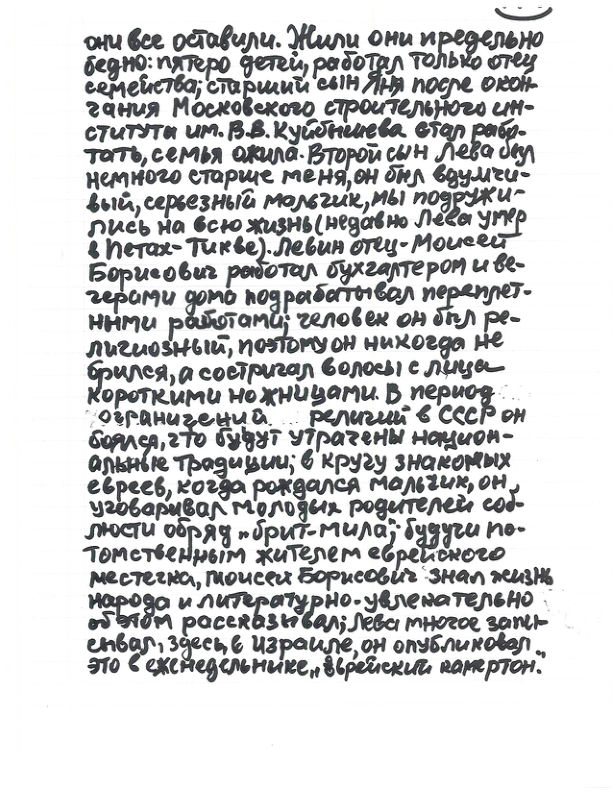 они все оставили. Жили они предельно
бедно: пятеро детей, работал только отец
семейства; старший сын Яня после окон-
чания Московского строительного ин-
ститута им. В.В. Куйбышева стал рабо-
тать, семья ожила. Второй сын Лева был
немного старше меня, он был вдумчи-
вый, серьезный мальчик, мы подружи-
лись на всю жизнь (недавно Лева умер
в Петах-Тикве). Левин отец - Моисей
Борисович работал бухгалтером и ве-
черами дома подрабатывал переплет-
ными работами; человек он был ре-
лигиозный, поэтому он никогда не
брился, а состригал волосы с лица
короткими ножницами. В период
ограничений религий в СССР он
боялся, что будут утрачены национ-
альные традиции; в кругу знакомых
евреев, когда рождался мальчик, он
уговаривал молодых родителей соб-
люсти обряд „брит-мила"; будучи по-
томственным жителем еврейского
местечка, Моисей Борисович знал жизнь
народа и литературно-увлекательно
об этом рассказывал; Лева многое запи-
сывал, здесь, в Израиле, он опубликовал
это в еженедельнике „Еврейский камертон."